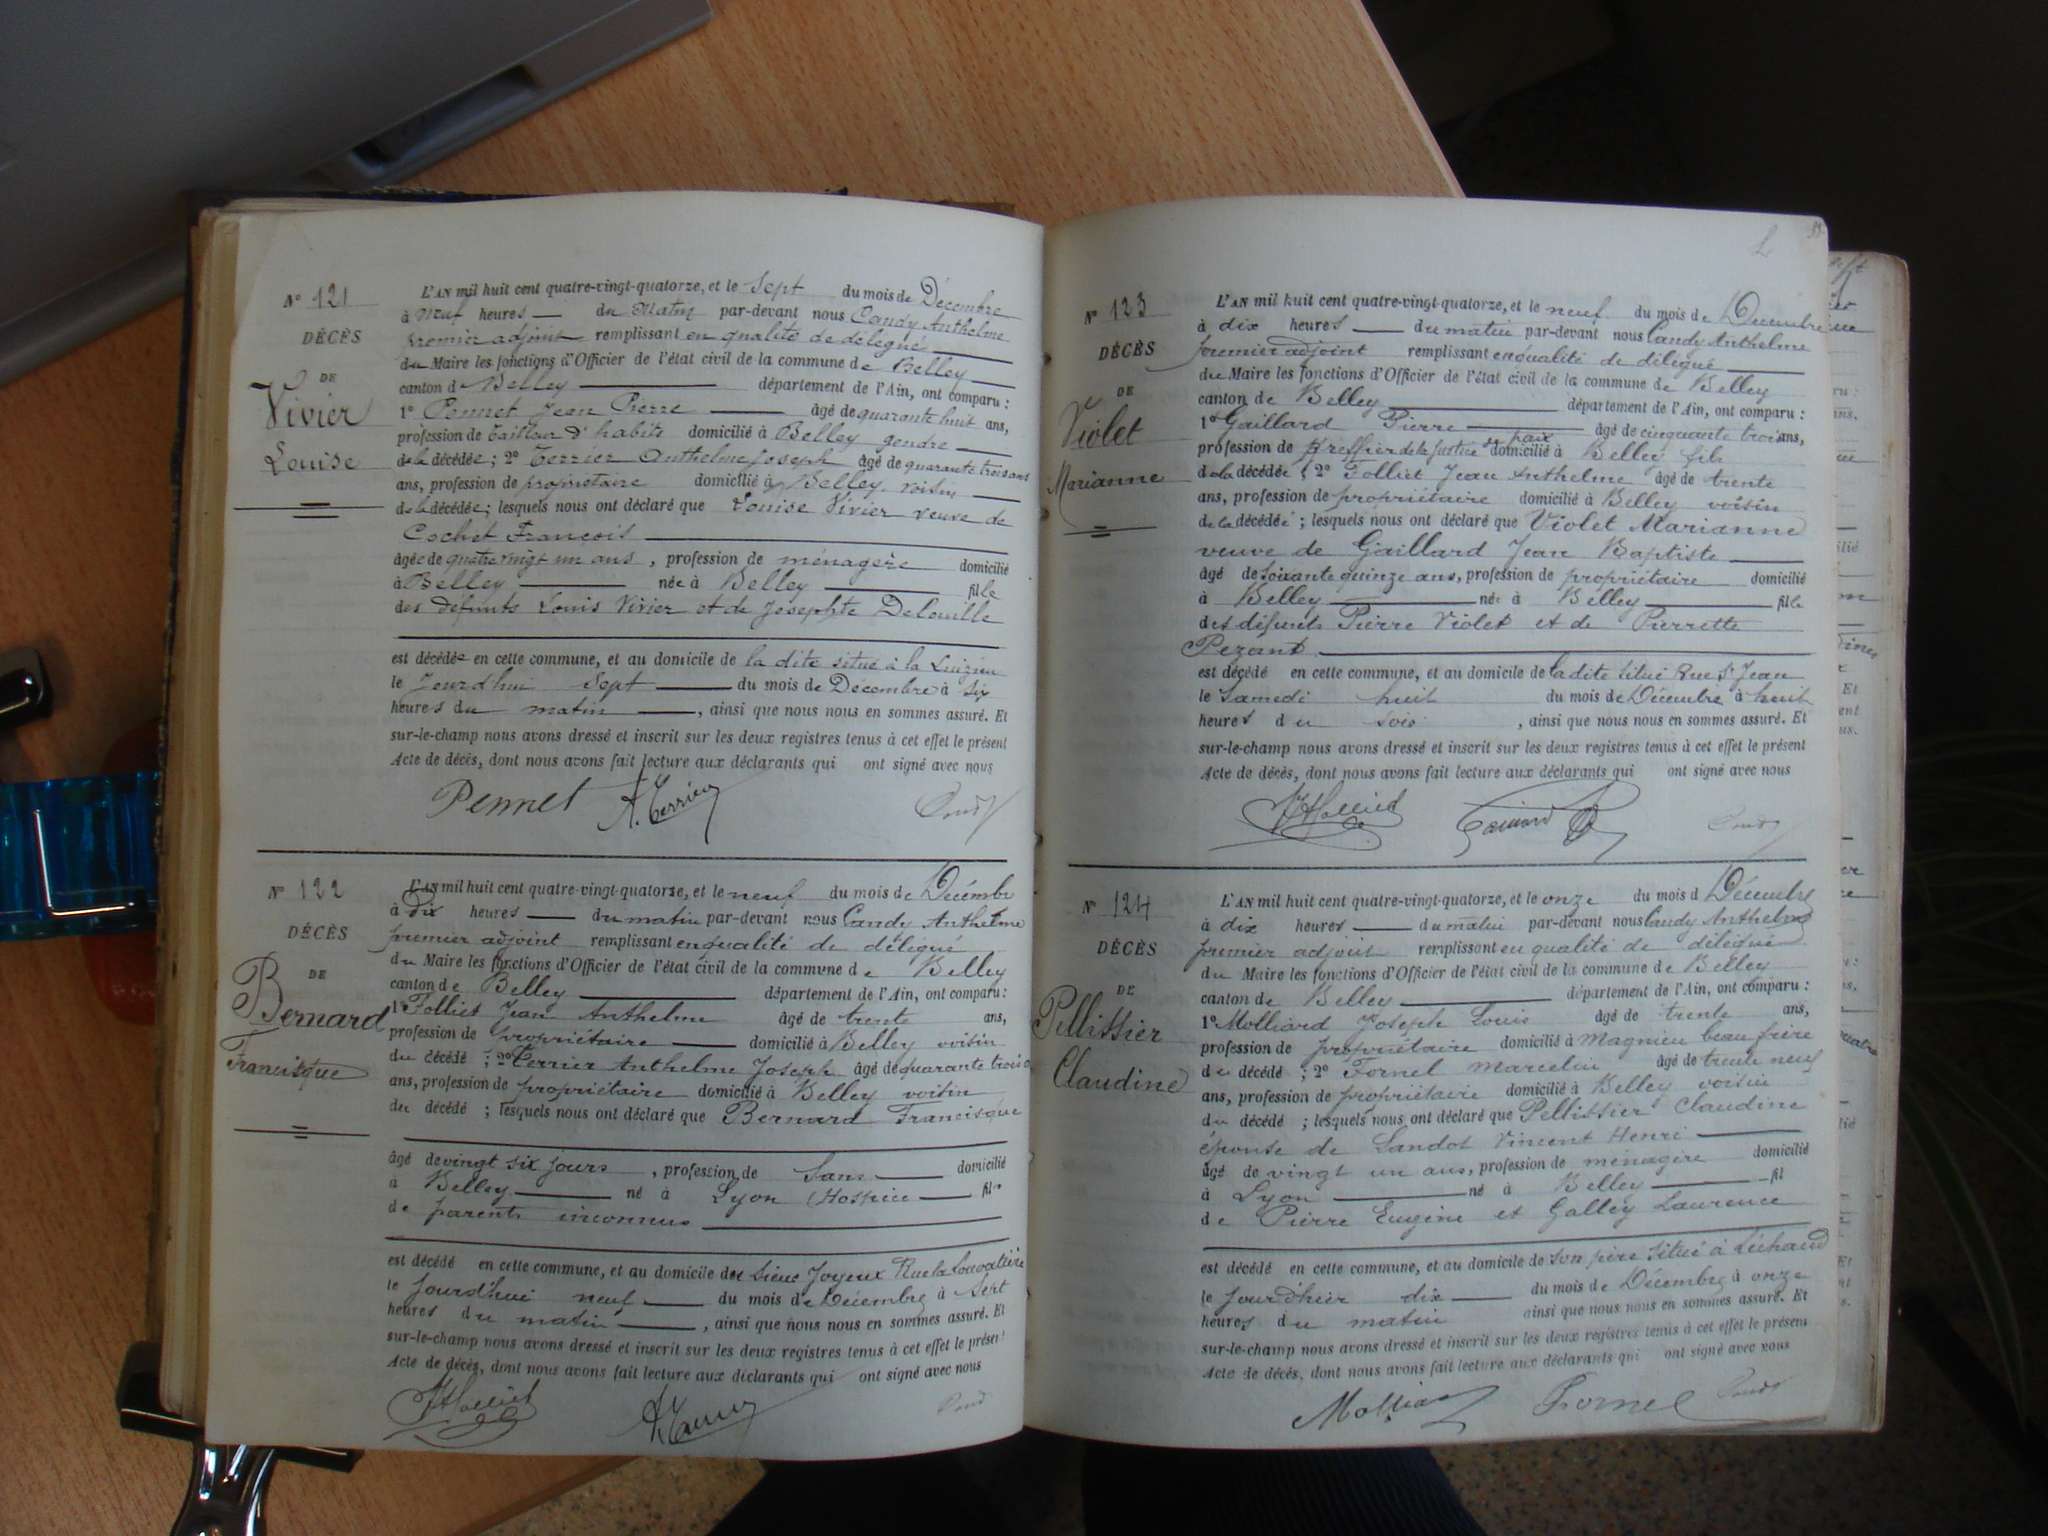 N° 121
DÉCÈS
DE
Vivier
Louise
L'AN mil huit cent quatre-vingt-quatorze, et le sept du mois de Décembre
à neuf heures du Matin par-devant nous Candy Anthelme
premier adjoint remplissant en qualité de délégué
du Maire les fonctions d'Officier de l'état civil de la commune de Belley
canton de Belley département de l'Ain, ont comparu :
1° Pennet Jean Pierre âgé de quarante huit ans,
profession de tailleur d'habits domicilié à Belley gendre
de la décédée ; 2° Terrier Anthelme Joseph âgé de quarante trois ans
ans, profession de propriétaire domicilié à Belley voisin
de la décédée ; lesquels nous ont déclaré que Louise Vivier veuve de
Cochet François
âgée de quatre vingt un ans, profession de ménagère domicilié
à Belley née à Belley fille
des défunts Louis Vivier et de Josephte
est décédée en cette commune, et au domicile de la dite situé à la
le Jourd'hui sept du mois de Décembre à six
heures du matin, ainsi que nous nous en sommes assuré. Et
sur-le-champ nous avons dressé et inscrit sur les deux registres tenus à cet effet le présent
Acte de décès, dont nous avons fait lecture aux déclarants qui ont signé avec nous
Pennet A. Terrier Candy
N° 122
DÉCÈS
DE
Bernard
Francisque
L'AN mil huit cent quatre-vingt-quatorze, et le neuf du mois de Décembre
à dix heures du matin par-devant nous Candy Anthelme
premier adjoint remplissant en qualité de délégué
du Maire les fonctions d'Officier de l'état civil de la commune de Belley
canton de Belley département de l'Ain, ont comparu :
1° Folliet Jean Anthelme âgé de trente ans,
profession de propriétaire domicilié à Belley voisin
du décédé ; 2° Terrier Anthelme Joseph âgé de quarante trois
ans, profession de propriétaire domicilié à Belley voisin
du décédé ; lesquels nous ont déclaré que Bernard Francisque
âgé de vingt six jours, profession de Sans domicilié
à Belley né à Lyon (Hospice fils
de parents inconnus
est décédé en cette commune, et au domicile des sieur Joyeux Rue la
le Jourd'hui neuf du mois de Décembre à sept
heures du matin, ainsi que nous nous en sommes assuré. Et
sur-le-champ nous avons dressé et inscrit sur les deux registres tenus à cet effet le présent
Acte de décès, dont nous avons fait lecture aux déclarants qui ont signé avec nous
Candy
N° 123
DÉCÈS
DE
Violet
Marianne
L'AN mil huit cent quatre-vingt-quatorze, et le neuf du mois de Décembre
à dix heures du matin par-devant nous Candy Anthelme
premier adjoint remplissant en qualité de délégué
du Maire les fonctions d'Officier de l'état civil de la commune de Belley
canton de Belley département de l'Ain, ont comparu :
1° Gaillard Pierre âgé de cinquante trois ans,
profession de Greffier de la justice de paix domicilié à Belley fils
de la décédée ; 2° Folliet Jean Anthelme âgé de trente
ans, profession de propriétaire domicilié à Belley voisin
de la décédée ; lesquels nous ont déclaré que Violet Marianne
veuve de Gaillard Jean Baptiste
âgé de soixante quinze ans, profession de propriétaire domicilié
à Belley née à Belley fille
des défunts Pierre Violet et de Pierrette
Pezant
est décédé en cette commune, et au domicile de la dite situé Rue St Jean
le samedi huit du mois de Décembre à huit
heures du soir, ainsi que nous nous en sommes assuré. Et
sur-le-champ nous avons dressé et inscrit sur les deux registres tenus à cet effet le présent
Acte de décès, dont nous avons fait lecture aux déclarants qui ont signé avec nous
Candy
N° 124
DÉCÈS
DE
Pellissier
Claudine
L'AN mil huit cent quatre-vingt-quatorze, et le onze du mois d Décembre
à dix heures du matin par-devant nous Candy Anthelme
premier adjoint remplissant en qualité de délégué
du Maire les fonctions d'Officier de l'état civil de la commune de Belley
canton de Belley département de l'Ain, ont comparu :
1° Molliard Joseph Louis âgé de trente ans,
profession de propriétaire domicilié à Magnieu beau frère
du décédé ; 2° Fornel Marcelin âgé de trente neuf
ans, profession de propriétaire domicilié à Belley voisin
du décédé ; lesquels nous ont déclaré que Pellissier Claudine
épouse de Landot Vincent Henri
âgé de vingt un ans, profession de ménagère domicilié
à Lyon né à Belley fil
de Pierre Eugène et Galley Laurence
est décédé en cette commune, et au domicile de son père situé à
le jourd'hier dix du mois de Décembre à onze
heures du matin ainsi que nous nous en sommes assuré. Et
sur-le-champ nous avons dressé et inscrit sur les deux registres tenus à cet effet le présent
Acte de décès, dont nous avons fait lecture aux déclarants qui ont signé avec nous
Fornel Candy